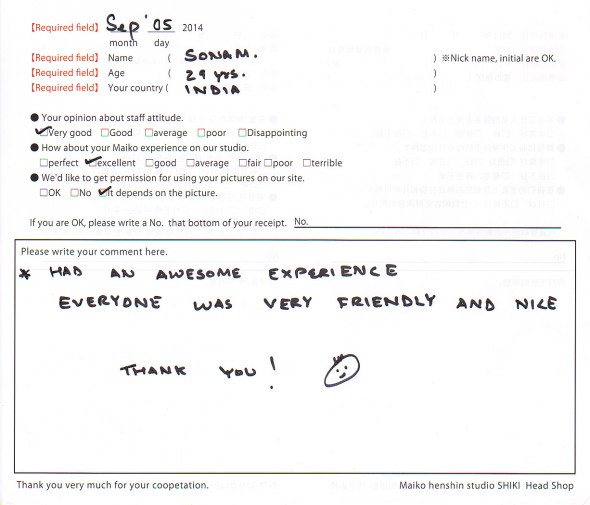 【Required field】 Sep '05 2014
month day
【Required field】 Name ( SONAM. ) ※Nick name, initial are OK.
【Required field】 Age ( 29 yrs. )
【Required field】 Your country ( INDIA )
● Your opinion about staff attitude.
☑Very good □Good □average □poor □Disappointing
● How about your Maiko experience on our studio.
□perfect ☑excellent □good □average □fair □poor □terrible
● We'd like to get permission for using your pictures on our site.
□OK □No ☑it depends on the picture.
If you are OK, please write a No. that bottom of your receipt. No.
Please write your comment here.
* HAD AN AWESOME EXPERIENCE
EVERYONE WAS VERY FRIENDLY AND NICE
THANK YOU!
Thank you very much for your coopetation. Maiko henshin studio SHIKI Head Shop